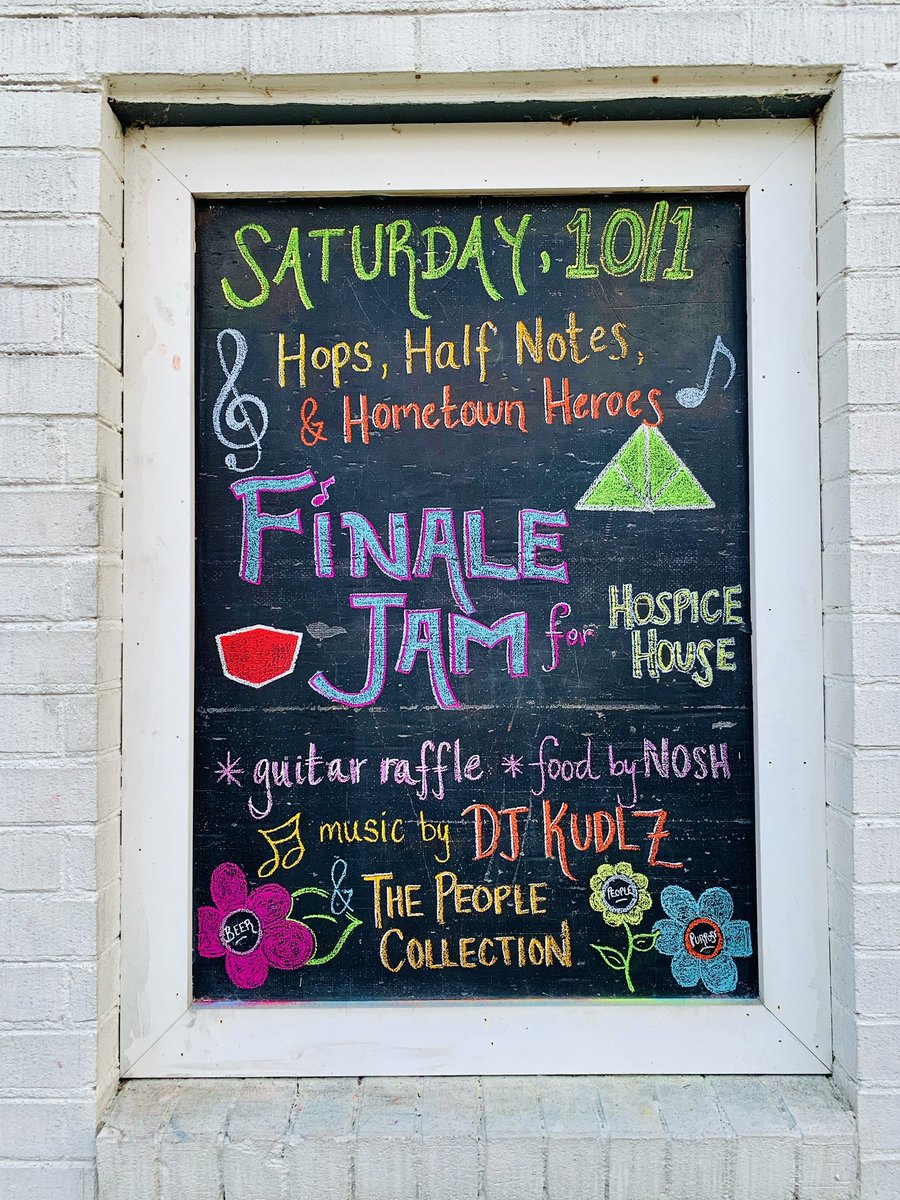 SATURDAY, 10/1
HOPS, HALF NOTES,
& HOMETOWN HEROES
FINALE
JAM for HOSPICE HOUSE
* guitar raffle * food by NOSH
music by DJ KUDLZ
& THE PEOPLE
COLLECTION
BEER
PEOPLE
PURPOSE